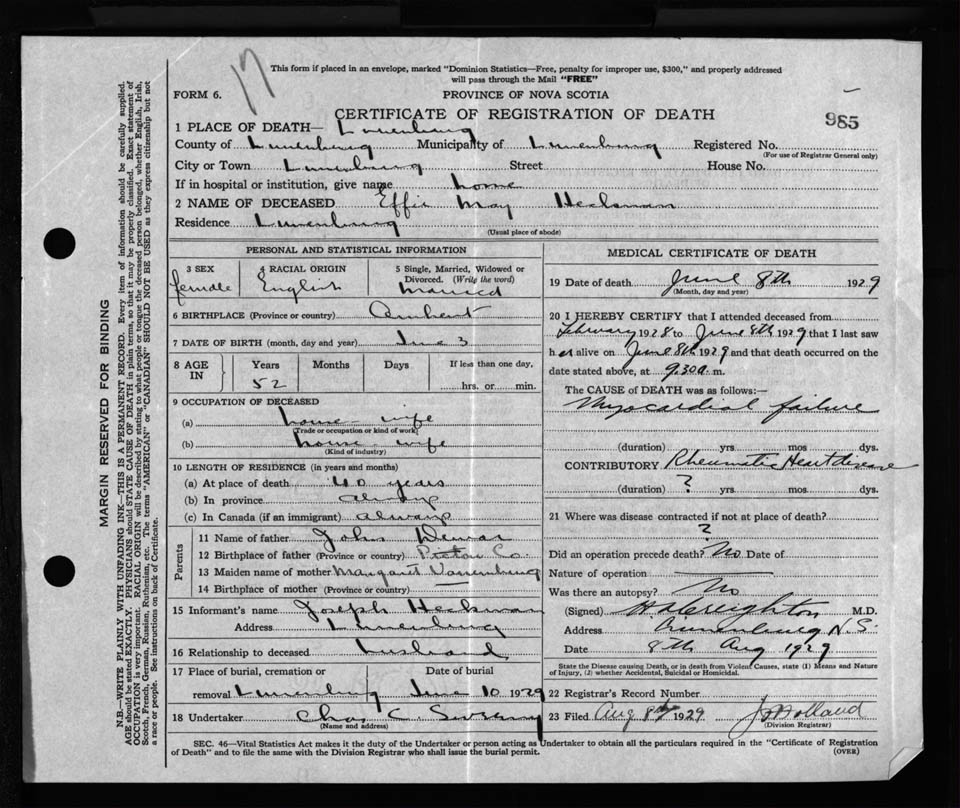 17
This form if placed in an envelope, marked "Dominion Statistics—Free, penalty for improper use, $300," and properly addressed
will pass through the Mail "FREE"
FORM 6.
PROVINCE OF NOVA SCOTIA
CERTIFICATE OF REGISTRATION OF DEATH
985
1 PLACE OF DEATH— Lunenburg
County of Lunenburg Municipality of Lunenburg Registered No.
(For use of Registrar General only)
City or Town Lunenburg Street House No.
If in hospital or institution, give name home
2 NAME OF DECEASED Effie May Heckman
Residence Lunenburg
(Usual place of abode)
PERSONAL AND STATISTICAL INFORMATION
3 SEX 4 RACIAL ORIGIN 5 Single, Married, Widowed or
Divorced. (Write the word)
female English married
6 BIRTHPLACE (Province or country) Amherst
7 DATE OF BIRTH (month, day and year) June 3
8 AGE IN Years Months Days If less than one day,
52 hrs. or min.
9 OCCUPATION OF DECEASED
(a) house wife
(Trade or occupation or kind of work)
(b) house wife
(Kind of industry)
10 LENGTH OF RESIDENCE (in years and months)
(a) At place of death 40 years
(b) In province always
(c) In Canada (if an immigrant) always
Parents
11 Name of father John
12 Birthplace of father (Province or country) Pictou Co.
13 Maiden name of mother Margaret
14 Birthplace of mother (Province or country) —
15 Informant's name Joseph Heckman
Address Lunenburg
16 Relationship to deceased husband
17 Place of burial, cremation or Date of burial
removal Lunenburg June 10 1929
18 Undertaker Chas C. Sweeny
(Name and address)
MEDICAL CERTIFICATE OF DEATH
19 Date of death June 8th 1929
(Month, day and year)
20 I HEREBY CERTIFY that I attended deceased from
February 1928 to June 8th 1929 that I last saw
her alive on June 8th 1929 and that death occurred on the
date stated above, at 9.30 a. m.
The CAUSE of DEATH was as follows:—
Myocardial failure
(duration) yrs mos dys.
CONTRIBUTORY Rheumatic Heart disease
(duration) ? yrs. mos. dys.
21 Where was disease contracted if not at place of death?
?
Did an operation precede death? No Date of
Nature of operation
Was there an autopsy? No
(Signed) M.D.
Address Lunenburg N.S.
Date 8th Aug 1929
State the Disease causing Death, or in death from Violent Causes, state (1) Means and Nature
of Injury, (2) whether Accidental, Suicidal or Homicidal.
22 Registrar's Record Number
23 Filed Aug 8th 1929
(Division Registrar)
SEC. 46—Vital Statistics Act makes it the duty of the Undertaker or person acting as Undertaker to obtain all the particulars required in the "Certificate of Registration
of Death" and to file the same with the Division Registrar who shall issue the burial permit.
(OVER)
MARGIN RESERVED FOR BINDING
N.B.—WRITE PLAINLY WITH UNFADING INK—THIS IS A PERMANENT RECORD. Every item of information should be carefully supplied.
AGE should be stated EXACTLY. PHYSICIANS should STATE CAUSE OF DEATH in plain terms, so that it may be properly classified. Exact statement of
OCCUPATION is very important. RACIAL ORIGIN will be described by stating to what people or tongue the deceased person belonged, whether English, Irish,
Scotch, French, German, Russian, Ruthenian, etc. The terms "AMERICAN" or "CANADIAN" SHOULD NOT BE USED as they express citizenship but not
a race or people. See instructions on back of Certificate.